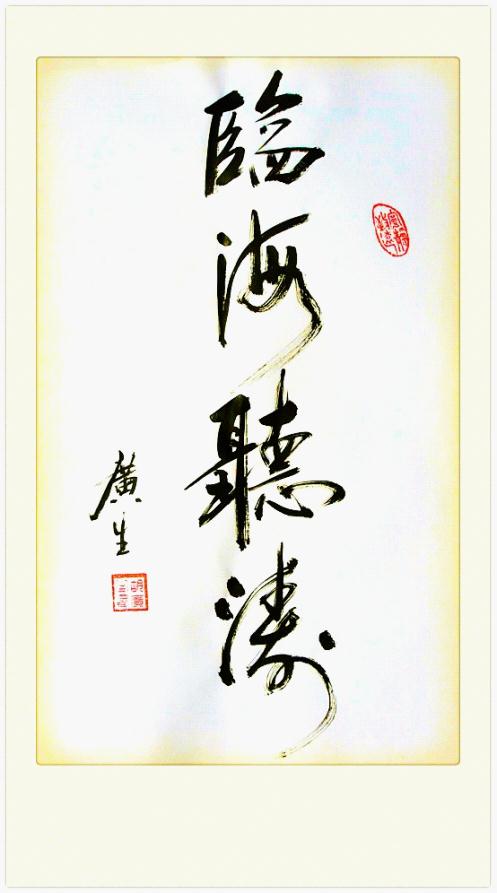 臨海聽濤
廣生